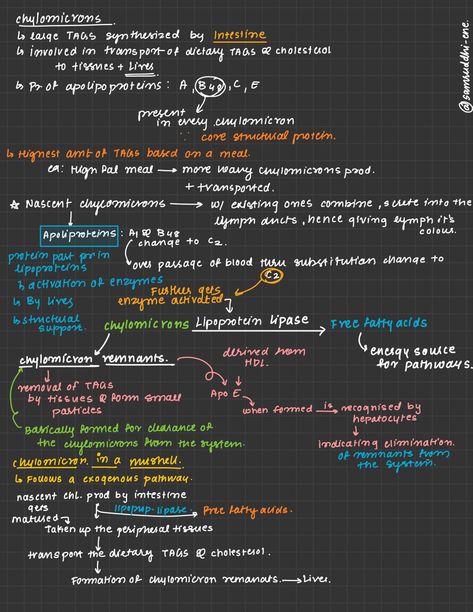 chylomicrons.
↳ large TAGs synthesized by Intestine
↳ involved in transport of dietary TAGs & cholesterol
to tissues + Lives
↳ Pr of apolipoproteins: A, B48, C, E
present
in every chylomicron
∵ core structural protein.
↳ Highest amt of TAGs based on a meal.
eg: High Fat meal → more heavy chylomicrons prod.
+ transported.
★ Nascent chylomicrons → w/ existing ones combine, secrete into the
lymph ducts, hence giving lymph it's
colour.
Apoliproteins: A1 & B48
change to C2.
protein part pr in
lipoproteins
over passage of blood thru substitution change to
C2
↳ activation of enzymes
↳ By lives
Further gets
enzyme activated
↳ structural
support.
chylomicrons Lipoprotein lipase → Free fatty acids
energy source
for pathways.
chylomicron remnants.
derived from
HDL.
removal of TAGs
by tissues & form small
particles
Apo E
when formed is → recognised by
hepatocytes
indicating elimination
of remnants from
the system.
Basically formed for clearance of
the chylomicrons from the system.
chylomicron in a nutshell.
↳ Follows a exogenous pathway.
nascent chl. prod by intestine
gets
matured
lipoprop. lipase. → Free fatty acids.
Taken up the peripheral tissues
transport the dietary TAGs & cholesterol.
Formation of chylomicron remanats. → Liver.
@samruddhi-ene.